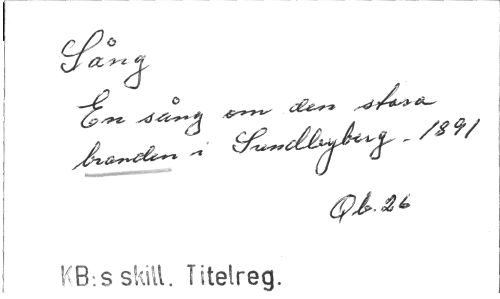 Sång
En sång om den stora
branden i Sundbyberg - 1891
Qb. 26
KB:s skill. Titelreg.